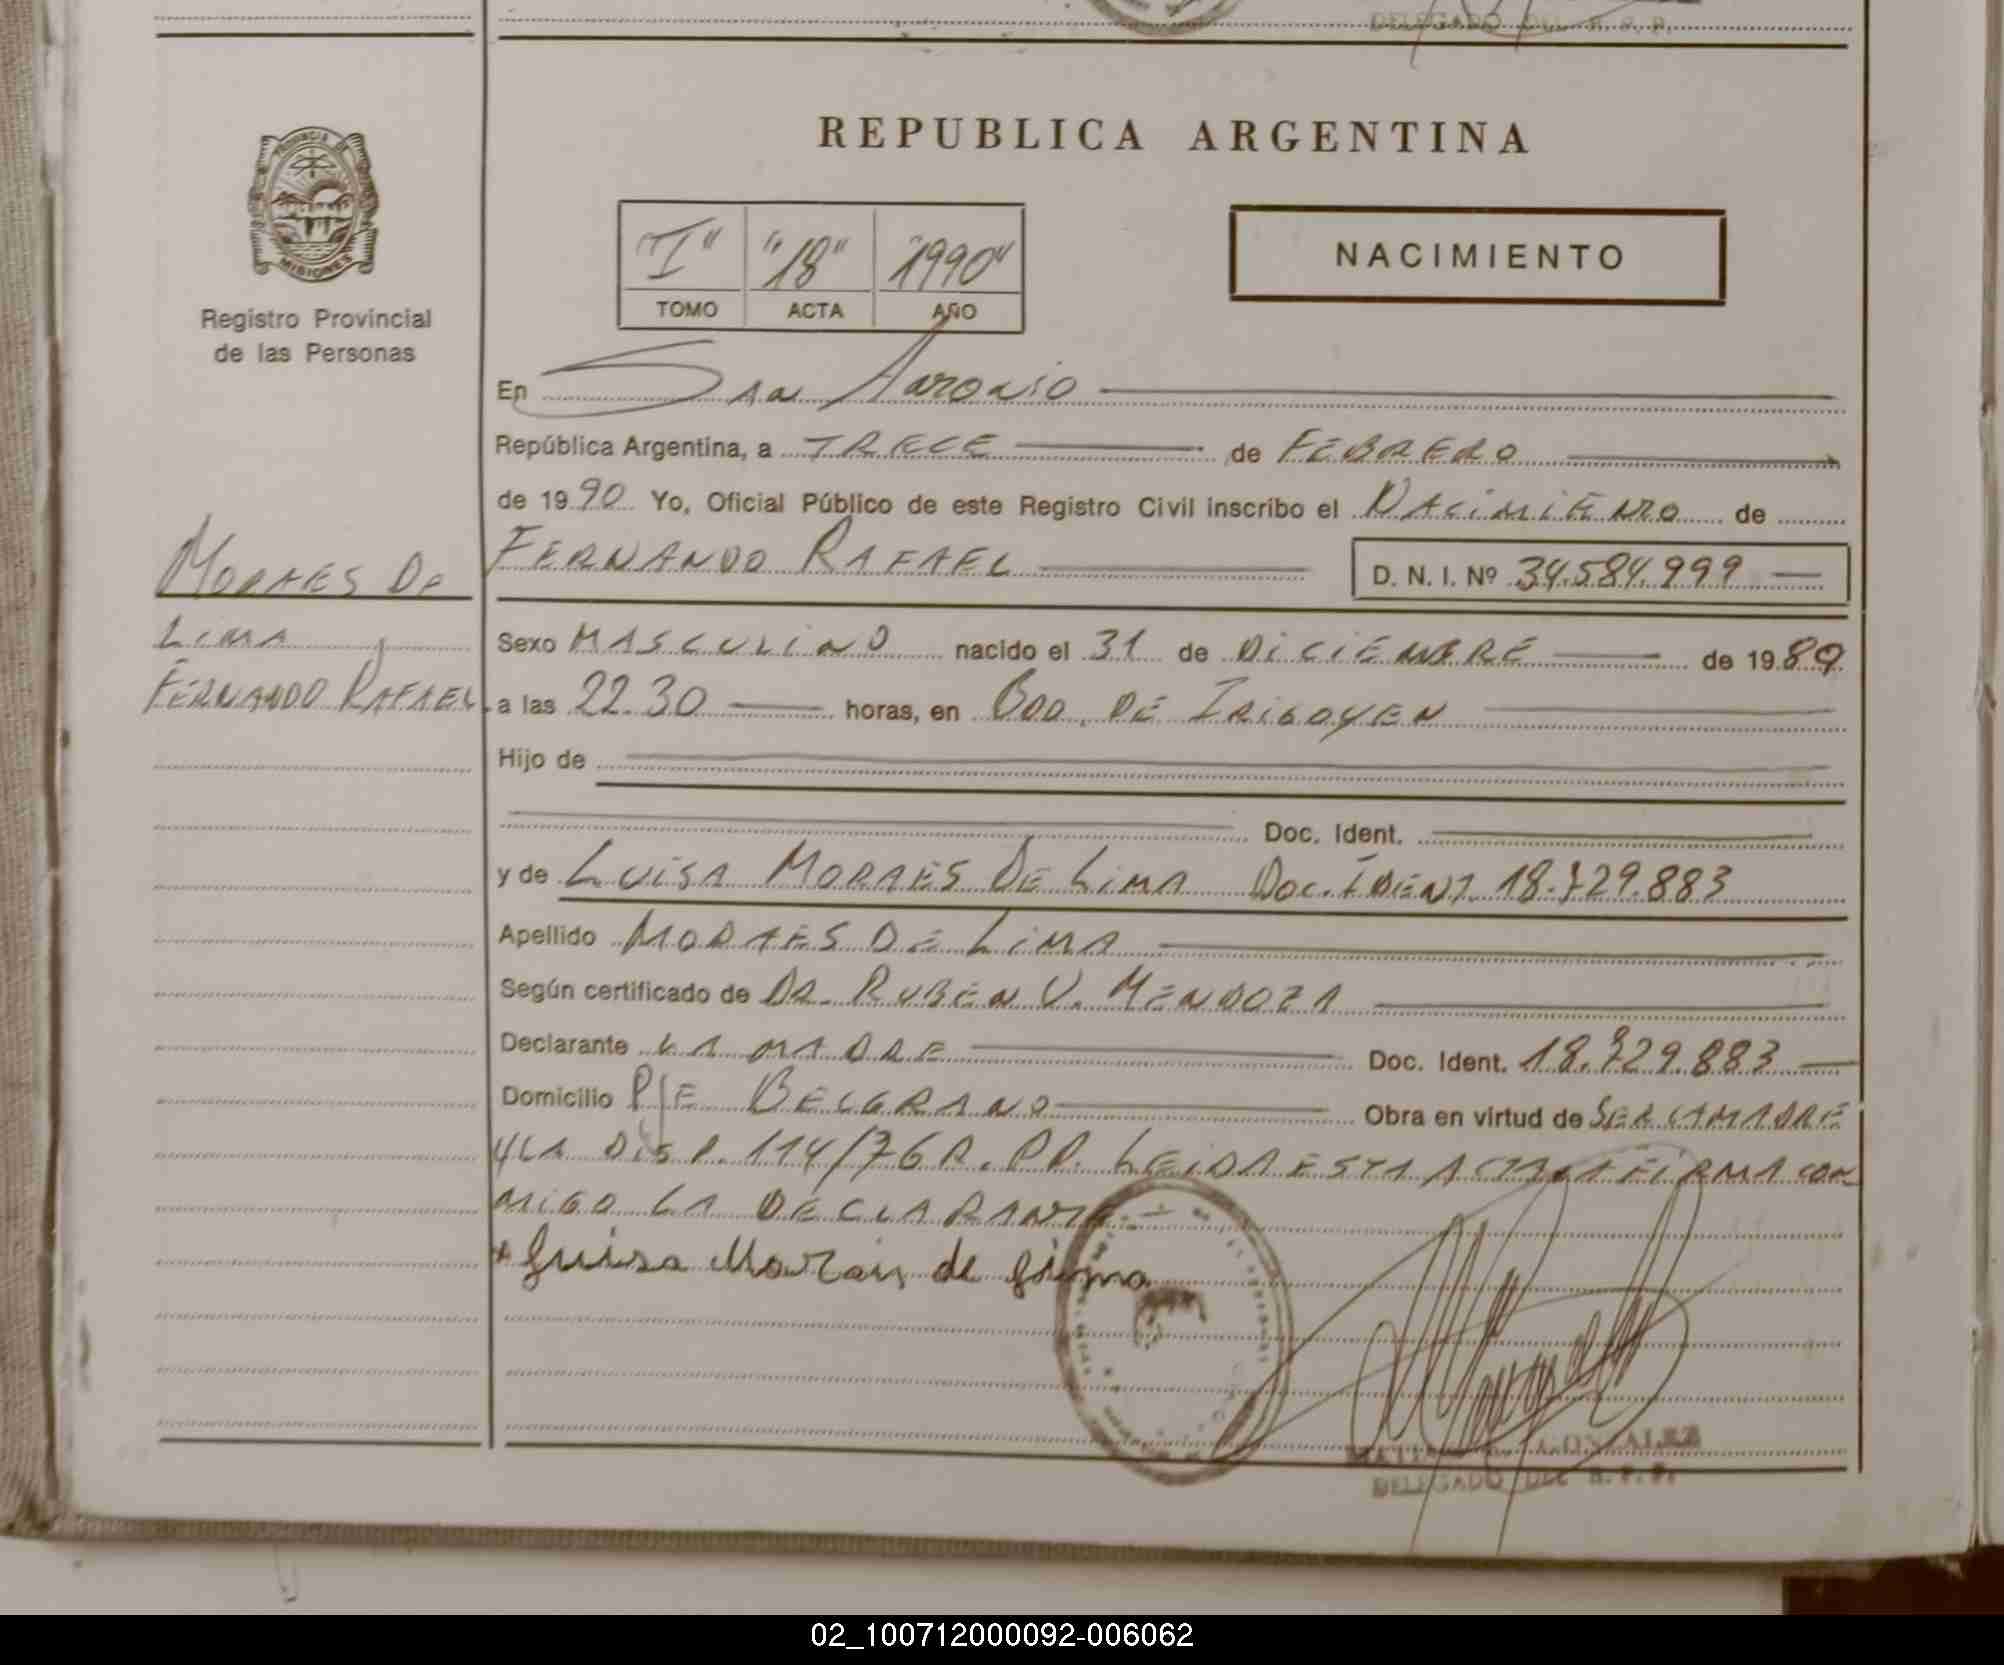 DELEGADO DEL R. P. P.
PROVINCIA DE
MISIONES
Registro Provincial
de las Personas
REPUBLICA ARGENTINA
"I" "18" "1990"
TOMO ACTA AÑO
NACIMIENTO
En San Antonio
República Argentina, a TRECE de FEBRERO
de 1990 Yo, Oficial Público de este Registro Civil inscribo el NACIMIENTO de
FERNANDO RAFAEL D. N. I. Nº 34.584.999
MORAES DE
LIMA
FERNANDO RAFAEL
Sexo MASCULINO nacido el 31 de DICIEMBRE de 1989
a las 22.30 horas, en BDO. DE IRIGOYEN
Hijo de
Doc. Ident.
y de LUISA MORAES DE LIMA DOC. IDENT. 18.729.883
Apellido MORAES DE LIMA
Según certificado de DR. RUBEN V. MENDOZA
Declarante LA MADRE Doc. Ident. 18.729.883
Domicilio P/E BELGRANO Obra en virtud de SER LA MADRE
Y LA DISP. 114/76 D.P.P. LEIDA ESTA ACTA LA FIRMA CON
MIGO LA DECLARANTE
Luisa de Lima
GONZALEZ
DELEGADO DEL R. P. P.
02_100712000092-006062